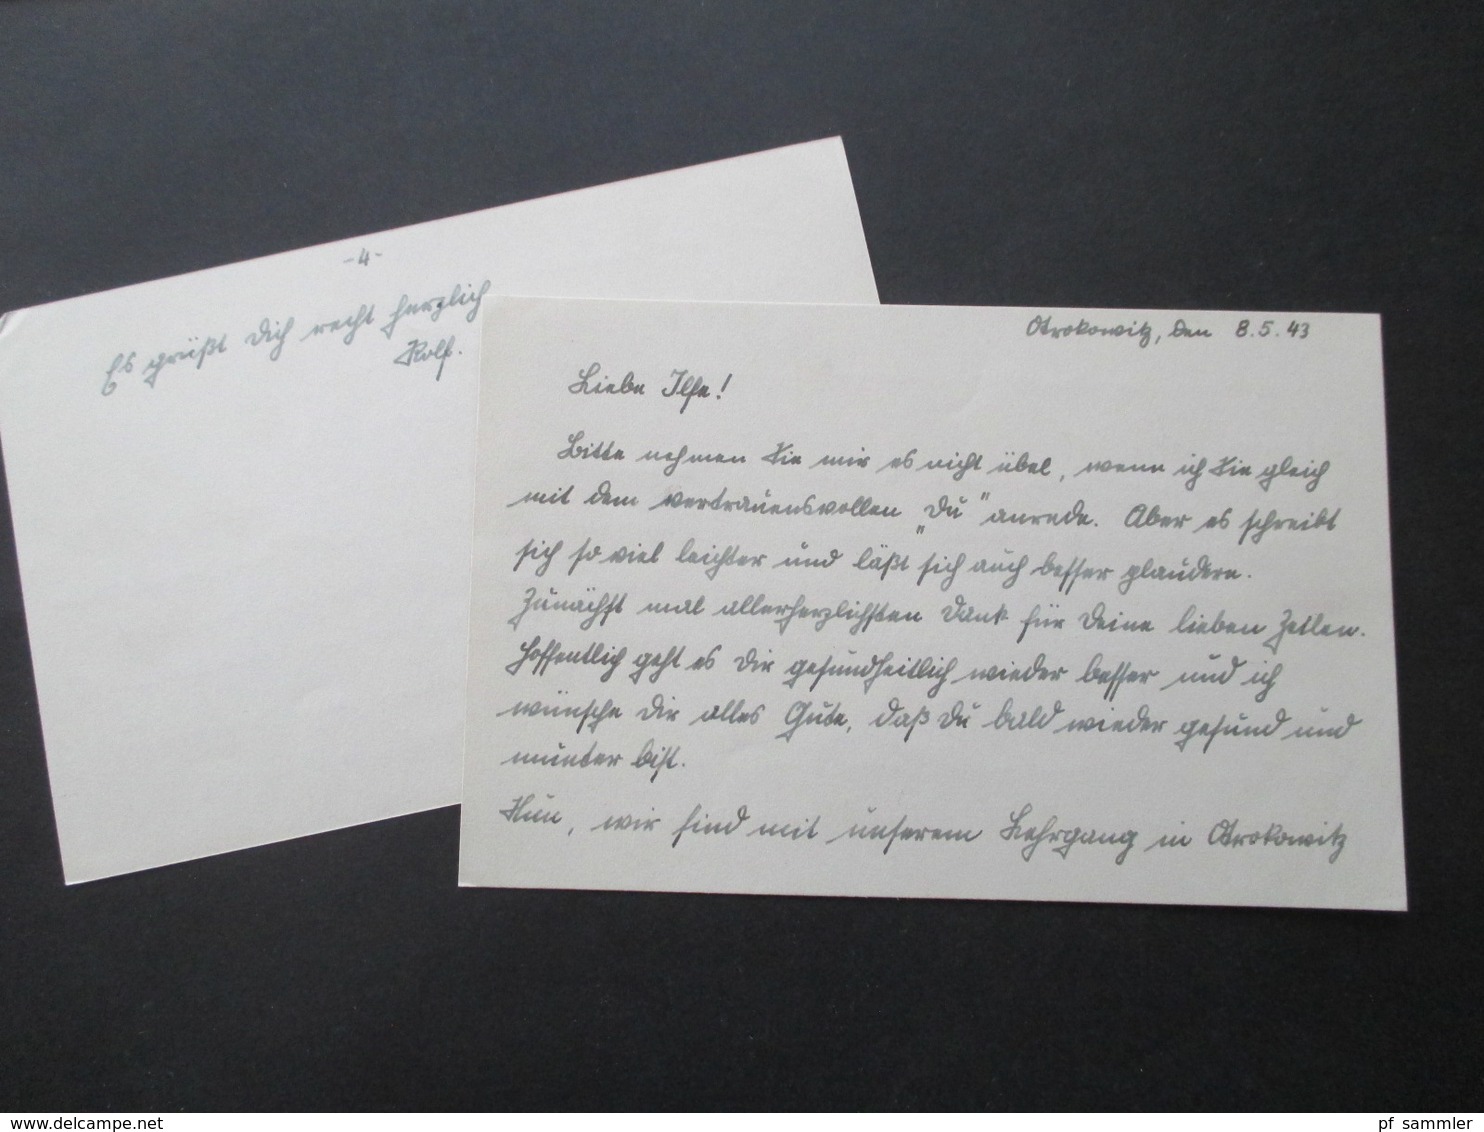 -4-
Es grüßt Dich recht herzlich
Rolf.
Otrokowitz, den 8.5.43
Liebe Ilse!
Bitte nehmen Sie mir es nicht übel, wenn ich Sie gleich
mit dem vertrauensvollen „Du“ anrede. Aber es schreibt
sich so viel leichter und läßt sich auch besser plaudern.
Zunächst mal allerherzlichsten Dank für Deine lieben Zeilen.
Hoffentlich geht es Dir gesundheitlich wieder besser und ich
wünsche Dir alles Gute, daß Du bald wieder gesund und
munter bist.
Nun, wir sind mit unserem Lehrgang in Otrokowitz
www.delcampe.net
pf_sammler